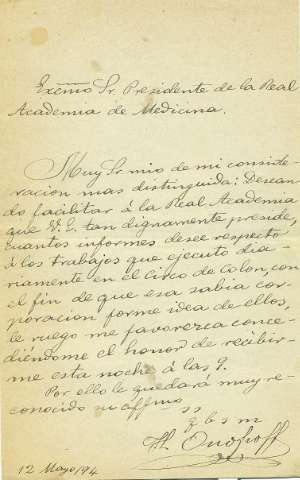 Excmo Sr. Presidente de la Real
Academia de Medicina.
Muy Sr mio de mi conside-
racion mas distinguida: Desean-
do facilitar á la Real Academia
que V.E. tan dignamente preside,
cuantos informes desee respecto
á los trabajos que ejecuto dia-
riamente en el Circo de Colon, con
el fin de que esa sabia cor-
poracion forme idea de ellos,
le ruego me favorezca conce-
diéndome el honor de recibir-
me esta noche á las 9.
Por ello le quedará muy re-
conocido su affmo
s s
q b s m
Onofroff
12 Mayo/94